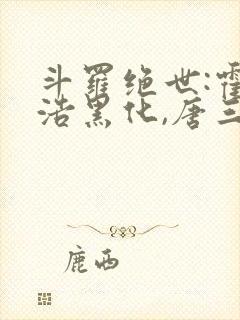 斗羅绝世:霍
浩黑化,唐三
鹿西